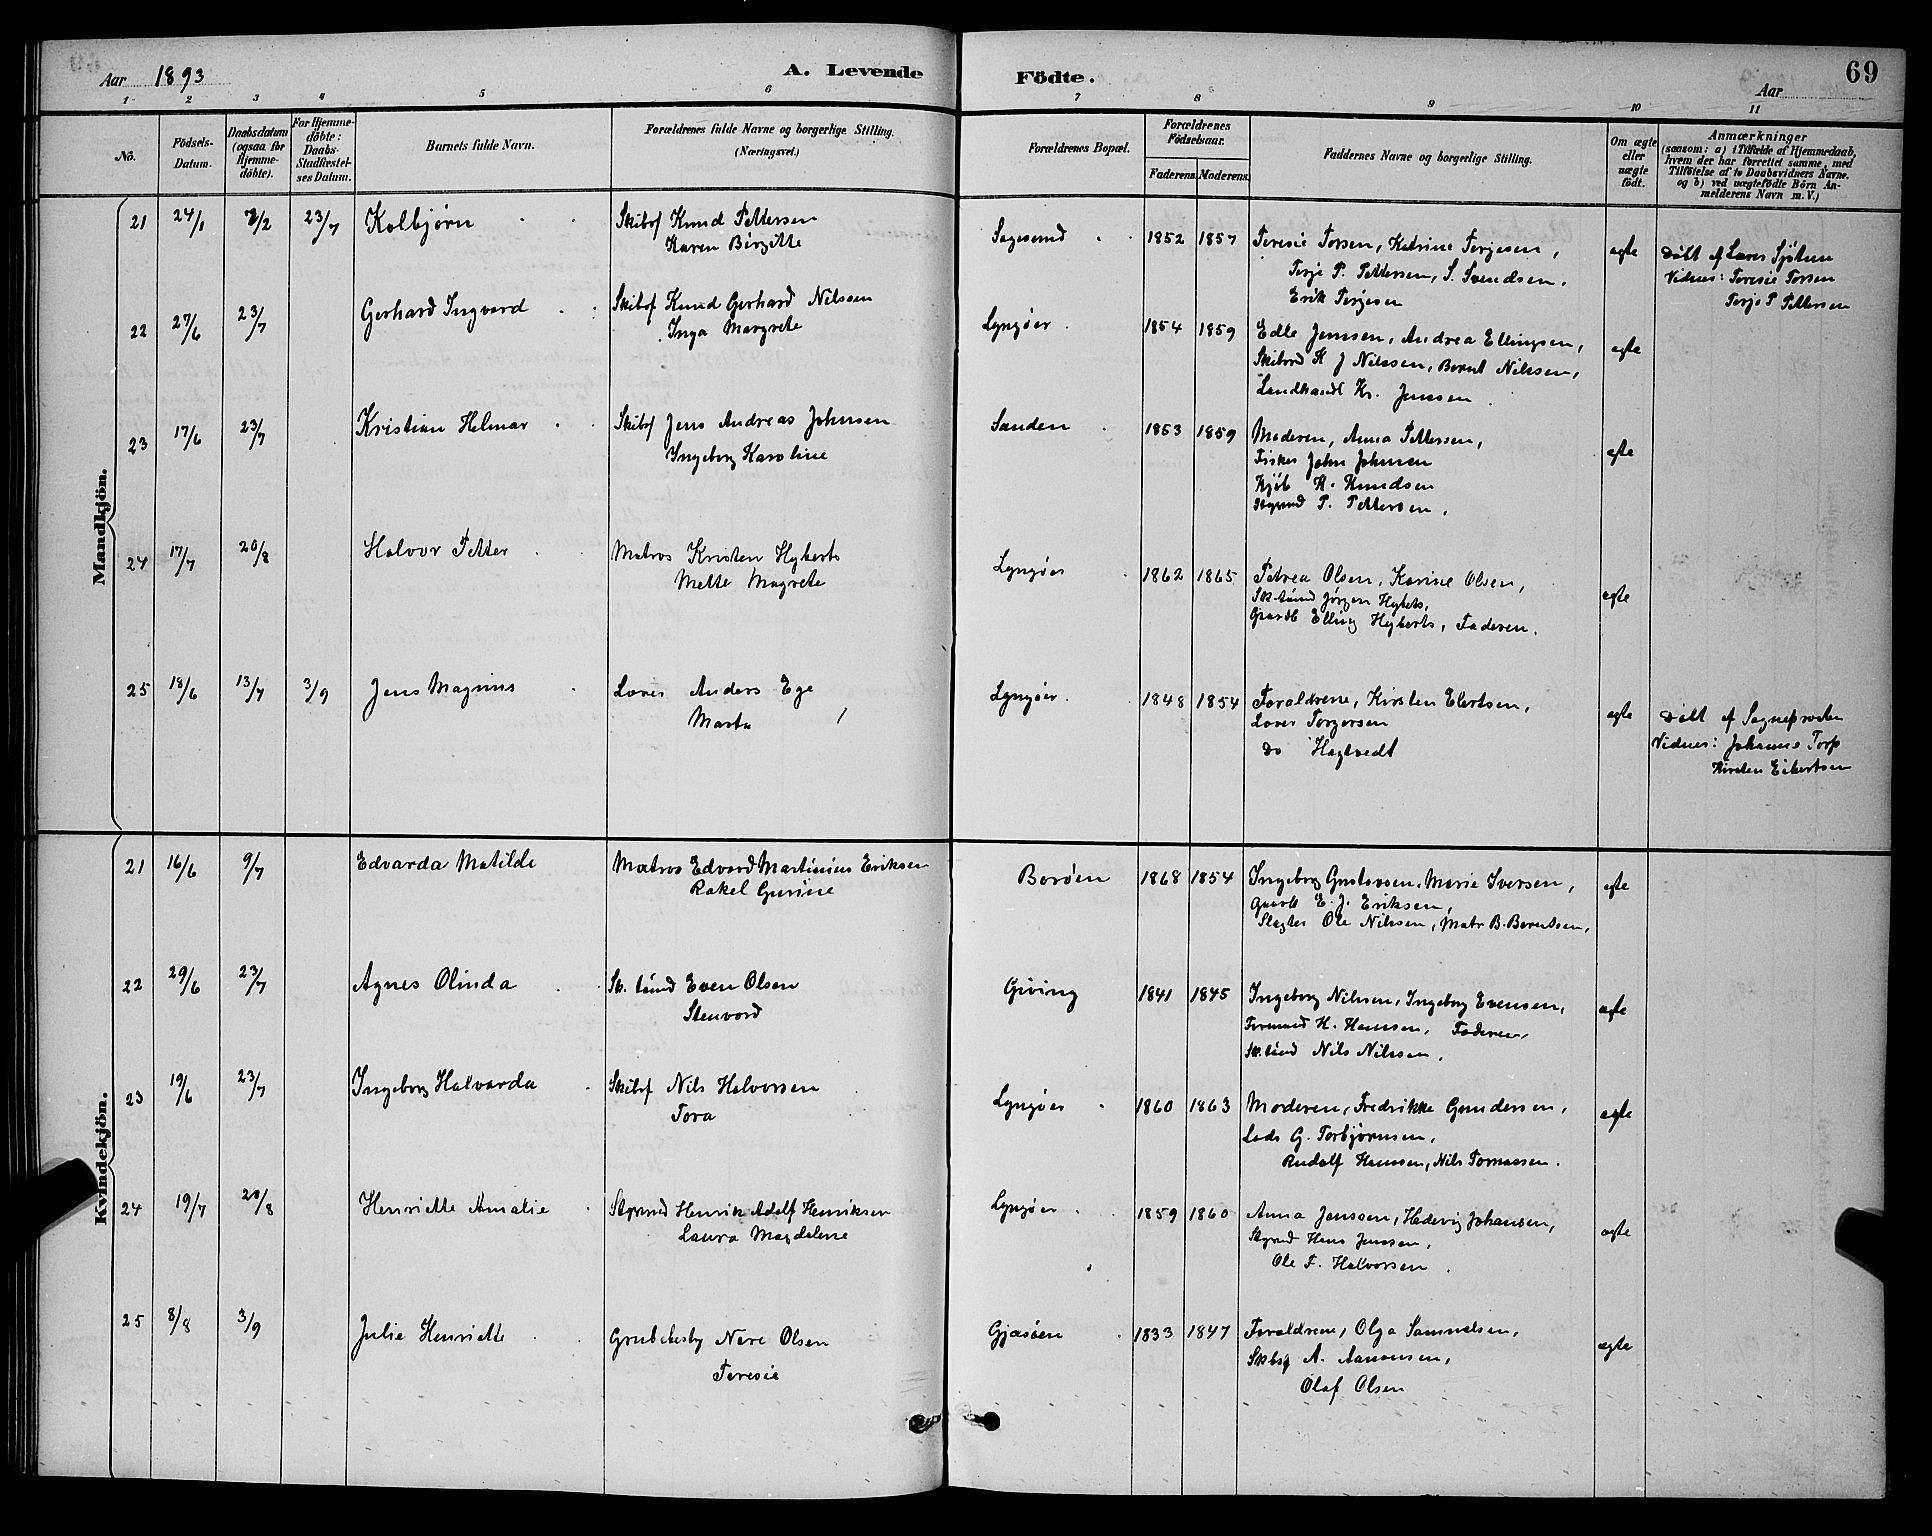 Aar 1893
A. Levende
Födte.
69
Aar
1 2 3 4 5 6 7 8 9 10 11
No.
Födsels-Datum.
Daabsdatum (ogsaa for Hjemme-döbte).
For Hjemme-döbte: Daabs-Stadfæstel-ses Datum.
Barnets fulde Navn.
Forældrenes fulde Navne og borgerlige Stilling.
(Næringsvei.)
Forældrenes Bopæl.
Forældrenes Födselsaar.
Faderens. Moderens.
Faddernes Navne og borgerlige Stilling.
Om ægte eller uægte födt.
Anmærkninger
(saasom: a) i Tilfælde af Hjemmedaab,
hvem der har forrettet samme, med
Tilföielse af to Daabsvidners Navne.
og b) ved uægtefödte Börn An-
melderens Navn m. V.)
Mandkjön.
21 24/1 2/2 23/7 Kolbjørn Skibsf Knud Pettersen Sagesund 1852 1857 Teresie Torsen, Katrine Terjesen, ægte Döbt af Lærer Sjötun
Karen Birgitte Terje P. Pettersen, S. Svendsen, Vidner: Teresie Torsen
Erik Terjesen Terje P Pettersen
22 27/6 23/7 Gerhard Ingvard Skibsf Knud Gerhard Nilssen Lyngøer 1854 1859 Edle Jenssen, Andrea Ellingsen, ægte
Inga Margrete Skibsred K J Nilssen, Bernt Nilssen,
Landhandl Kr. Jenssen
23 17/6 23/7 Kristian Helmar Skibsf Jens Andreas Johnsen Sanden 1853 1859 Moderen, Anna Pettersen, ægte
Ingeborg Karoline Fisker John Johnsen
Kjøb K. Knudsen
Styrmd P. Pettersen,
24 17/7 20/8 Halvor Petter Matros Kristen Hyberts Lyngøer 1862 1865 Petrea Olsen, Karine Olsen, ægte
Mette Magrete Sk.tømd Jørgen Hyberts,
Gaardb Elling Hyberts, Faderen.
25 18/6 13/7 3/9 Jens Magnus Lover Anders Ege Lyngøer 1848 1854 Forældrene, Kirsten Elertsen, ægte Döbt af Sognepresten
Marta Torgersen Vidner: Johanne Torp
Do Hagtvedt Kirsten
Kvindekjön.
21 16/6 9/7 Edvarda Matilde Matros Edvard Martinius Eriksen Borøen 1868 1854 Ingeborg Gustavsen, Marie Iversen, ægte
Rakel Gurine Gaardb E. J. Eriksen,
Slagter Ole Nilssen, Matr B. Berntsen,
22 29/6 23/7 Agnes Olinda Sk. tømd Even Olsen Giving 1841 1845 Ingeborg Nilssen, Ingeborg Evensen, ægte
Stenvord H. Hanssen, Faderen,
Sk.tømd Nils Nilssen,
23 19/6 23/7 Ingeborg Halvarda Skibsf Nils Halvorsen Lyngøer 1860 1863 Moderen, Fredrikke Gundersen, ægte
Tora Lods G. Torbjørnsen,
Rudolf Hanssen, Nils Tomassen.
24 19/7 20/8 Henriette Amalie Styrmd Henrik Adolf Henriksen Lyngøer 1859 1860 Anna Jenssen, Hedevig Johansen, ægte
Laura Magdalene Styrmd Hans Jenssen,
Ole F. Halvorsen.
25 8/8 3/9 Julie Henriette Nere Olsen Gjæsöen 1833 1847 Forældrene, Olga Samuelsen, ægte
Teresie A. Aanonsen,
Olaf Olsen